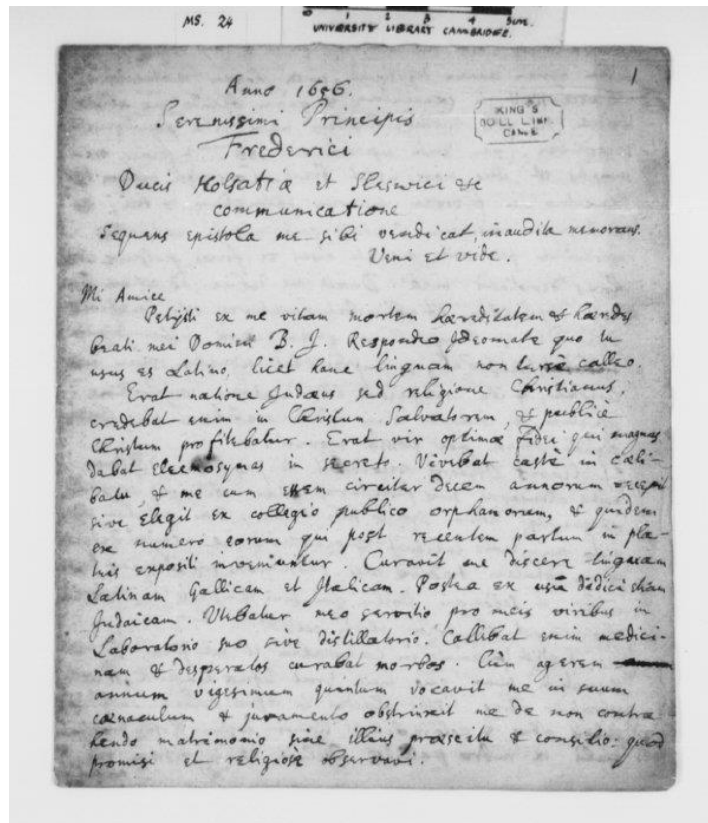 MS. 24
0 1 2 3 4 5cm.
UNIVERSITY LIBRARY CAMBRIDGE.
1
KING'S
COLL. LIBR.
CAMB.
Anno 1656.
Serenissimi Principis
Frederici
Ducis Holsatiæ et Sleswici etc
communicatione
Sequens epistola me sibi vendicat, inaudita memorans.
Veni et vide.
Mi Amice
Petijsti ex me vitam mortem hæreditatem & hæredes
beati mei Domini B. J. Respondeo Ideomate quo tu
usus es Latino, licet hanc linguam non calleo.
Erat natione Judæus sed religione Christianus,
credebat enim in Christum Salvatorem, & publicè
Christum profitebatur. Erat vir optimæ fidei qui magnas
dabat eleemosynas in secreto. Vivebat castè in cæli-
batu, & me cum essem circiter decem annorum recepit
sive elegit ex collegio publico orphanorum, & quidem
ex numero eorum qui post recentem partum in pla-
teis expositi inveniuntur. Curavit me discere linguam
Latinam Gallicam et Italicam. Postea ex usu didici etiam
Judaicam. Utebatur meo servitio pro meis viribus in
Laboratorio suo sive distillatorio. Callebat enim medici-
nam & desperatos curabat morbos. Cùm agerem
annum vigesimum quintum vocavit me in suum
cænaculum & juramento obstrinxit me de non contra
hendo matrimonio sine illius præscitu & consilio: quod
promisi et religiosè observavi.